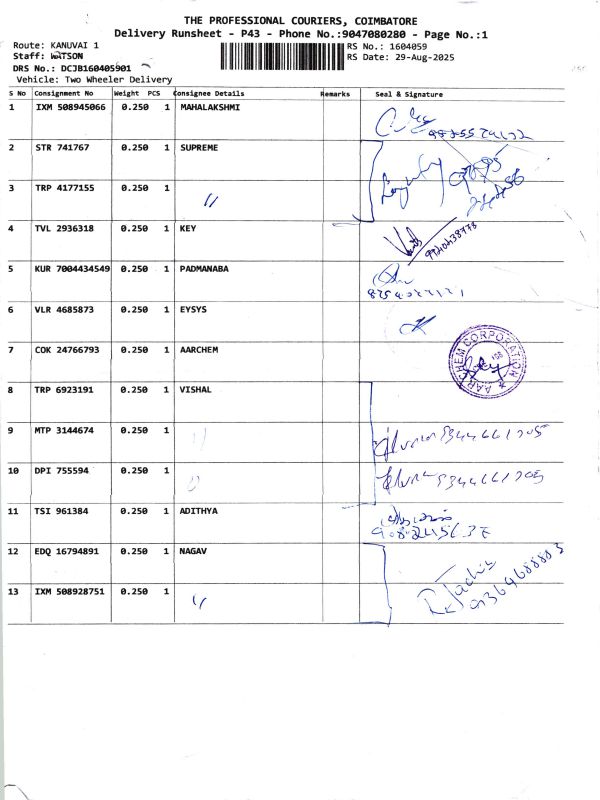 THE PROFESSIONAL COURIERS, COIMBATORE
Delivery Runsheet - P43 - Phone No.:9047080280 - Page No.:1
Route: KANUVAI 1 RS No.: 1604059
Staff: WATSON RS Date: 29-Aug-2025
DRS No.: DCJB160405901
Vehicle: Two Wheeler Delivery
S No Consignment No Weight PCS Consignee Details Remarks Seal & Signature
1 IXM 508945066 0.250 1 MAHALAKSHMI
2 STR 741767 0.250 1 SUPREME
3 TRP 4177155 0.250 1 "
4 TVL 2936318 0.250 1 KEY
5 KUR 7004434549 0.250 1 PADMANABA
6 VLR 4685873 0.250 1 EYSYS
7 COK 24766793 0.250 1 AARCHEM AARCHEM CORPORATION
8 TRP 6923191 0.250 1 VISHAL
9 MTP 3144674 0.250 1 " 9344661705
10 DPI 755594 0.250 1 " 9344661705
11 TSI 961384 0.250 1 ADITHYA
12 EDQ 16794891 0.250 1 NAGAV
13 IXM 508928751 0.250 1 "